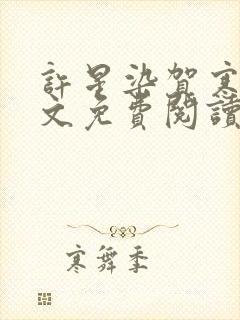 許星染賀寒
文免費閱讀
寒舞季